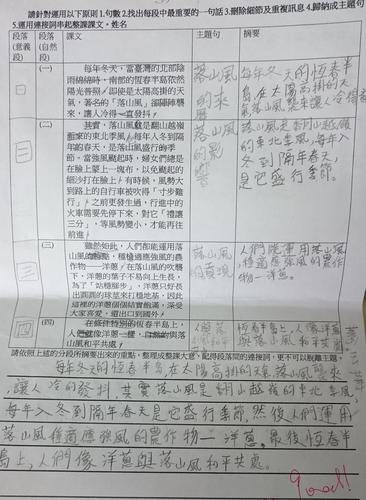 請針對運用以下原則1.句數2.找出每段中最重要的一句話3.刪除細節及重複訊息4.歸納成主題句
5.運用連接詞串起整課課文。姓名
段落(意義段) 段落(自然段) 課文 主題句 摘要
一
(一)
每年冬天，當臺灣的北部陰
雨綿綿時，南部的恆春半島依然
陽光普照，即使是太陽高掛的天
氣，著名的「落山風」卻陣陣襲
來，讓人冷得直發抖。
落山風
的來
每年冬天的恆春半
島，在太陽高掛的天
氣落山風襲來讓人冷得
二
(二)
其實，落山風就是翻山越嶺
而來的東北季風，每年入冬到隔
年的春天，是落山風盛行的季
節。當強風颳起時，婦女們總是
在臉上蒙上一塊布，以免颳起的
細沙打在臉上，有時候，風勢大
到路上的自行車被吹得「寸步難
行」，之前要發生過，行進中的
火車需要先停下來，對它「禮讓
三分」，等風勢變小，才能再往
前進。
落山風
的影
響
落山風是翻山越嶺
的東北季風，每年入
冬到隔年春天，
是它盛行季節。
三
(三)
雖然如此，人們卻能運用落
山風的特點，種植適應強風的農
作物——洋蔥。在落山風的吹襲
下，洋蔥的葉子不易向上生長，
為了「站穩腳步」，洋蔥只好長
出圓圓的球莖來打穩地基，因此
這裡的洋蔥個個結實飽滿，深受
大家喜愛，還出口到國外。
落山風
的
人們能運用落山風
種植適應強風的農作
物－洋蔥。
四
(四)
在低矮狹窄的恆春半島上，
人們就像洋蔥一樣，自然的與落
山風和平共處。
恆春半島上，人像洋蔥
與落山風和平共處
請依照上述的分段所摘要出來的重點，整理成整課大意，記得段落間的連接詞，更不可以脫離主題。
每年冬天的恆春半島在太陽高掛的天氣落山風襲來
讓人冷的發抖，其實落山風是翻山越嶺的東北季風，
每年入冬到隔年春天是它盛行季節，然後人們運用
落山風種適應強風的農作物－洋蔥。最後恆春半
島上，人們像洋蔥與落山風和平共處。
Good!